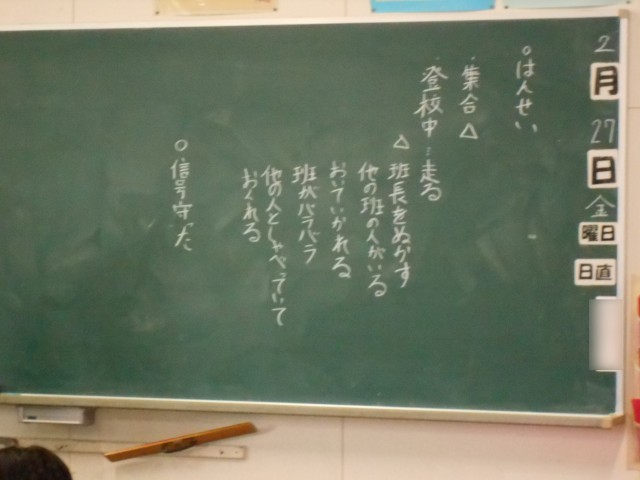 2月27日金曜日
日直
○はんせい
・集合△
・登校中…走る
△班長をぬかす
他の班の人がいる
おいていかれる
班がバラバラ
他の人としゃべっていて
おくれる
○信号守った